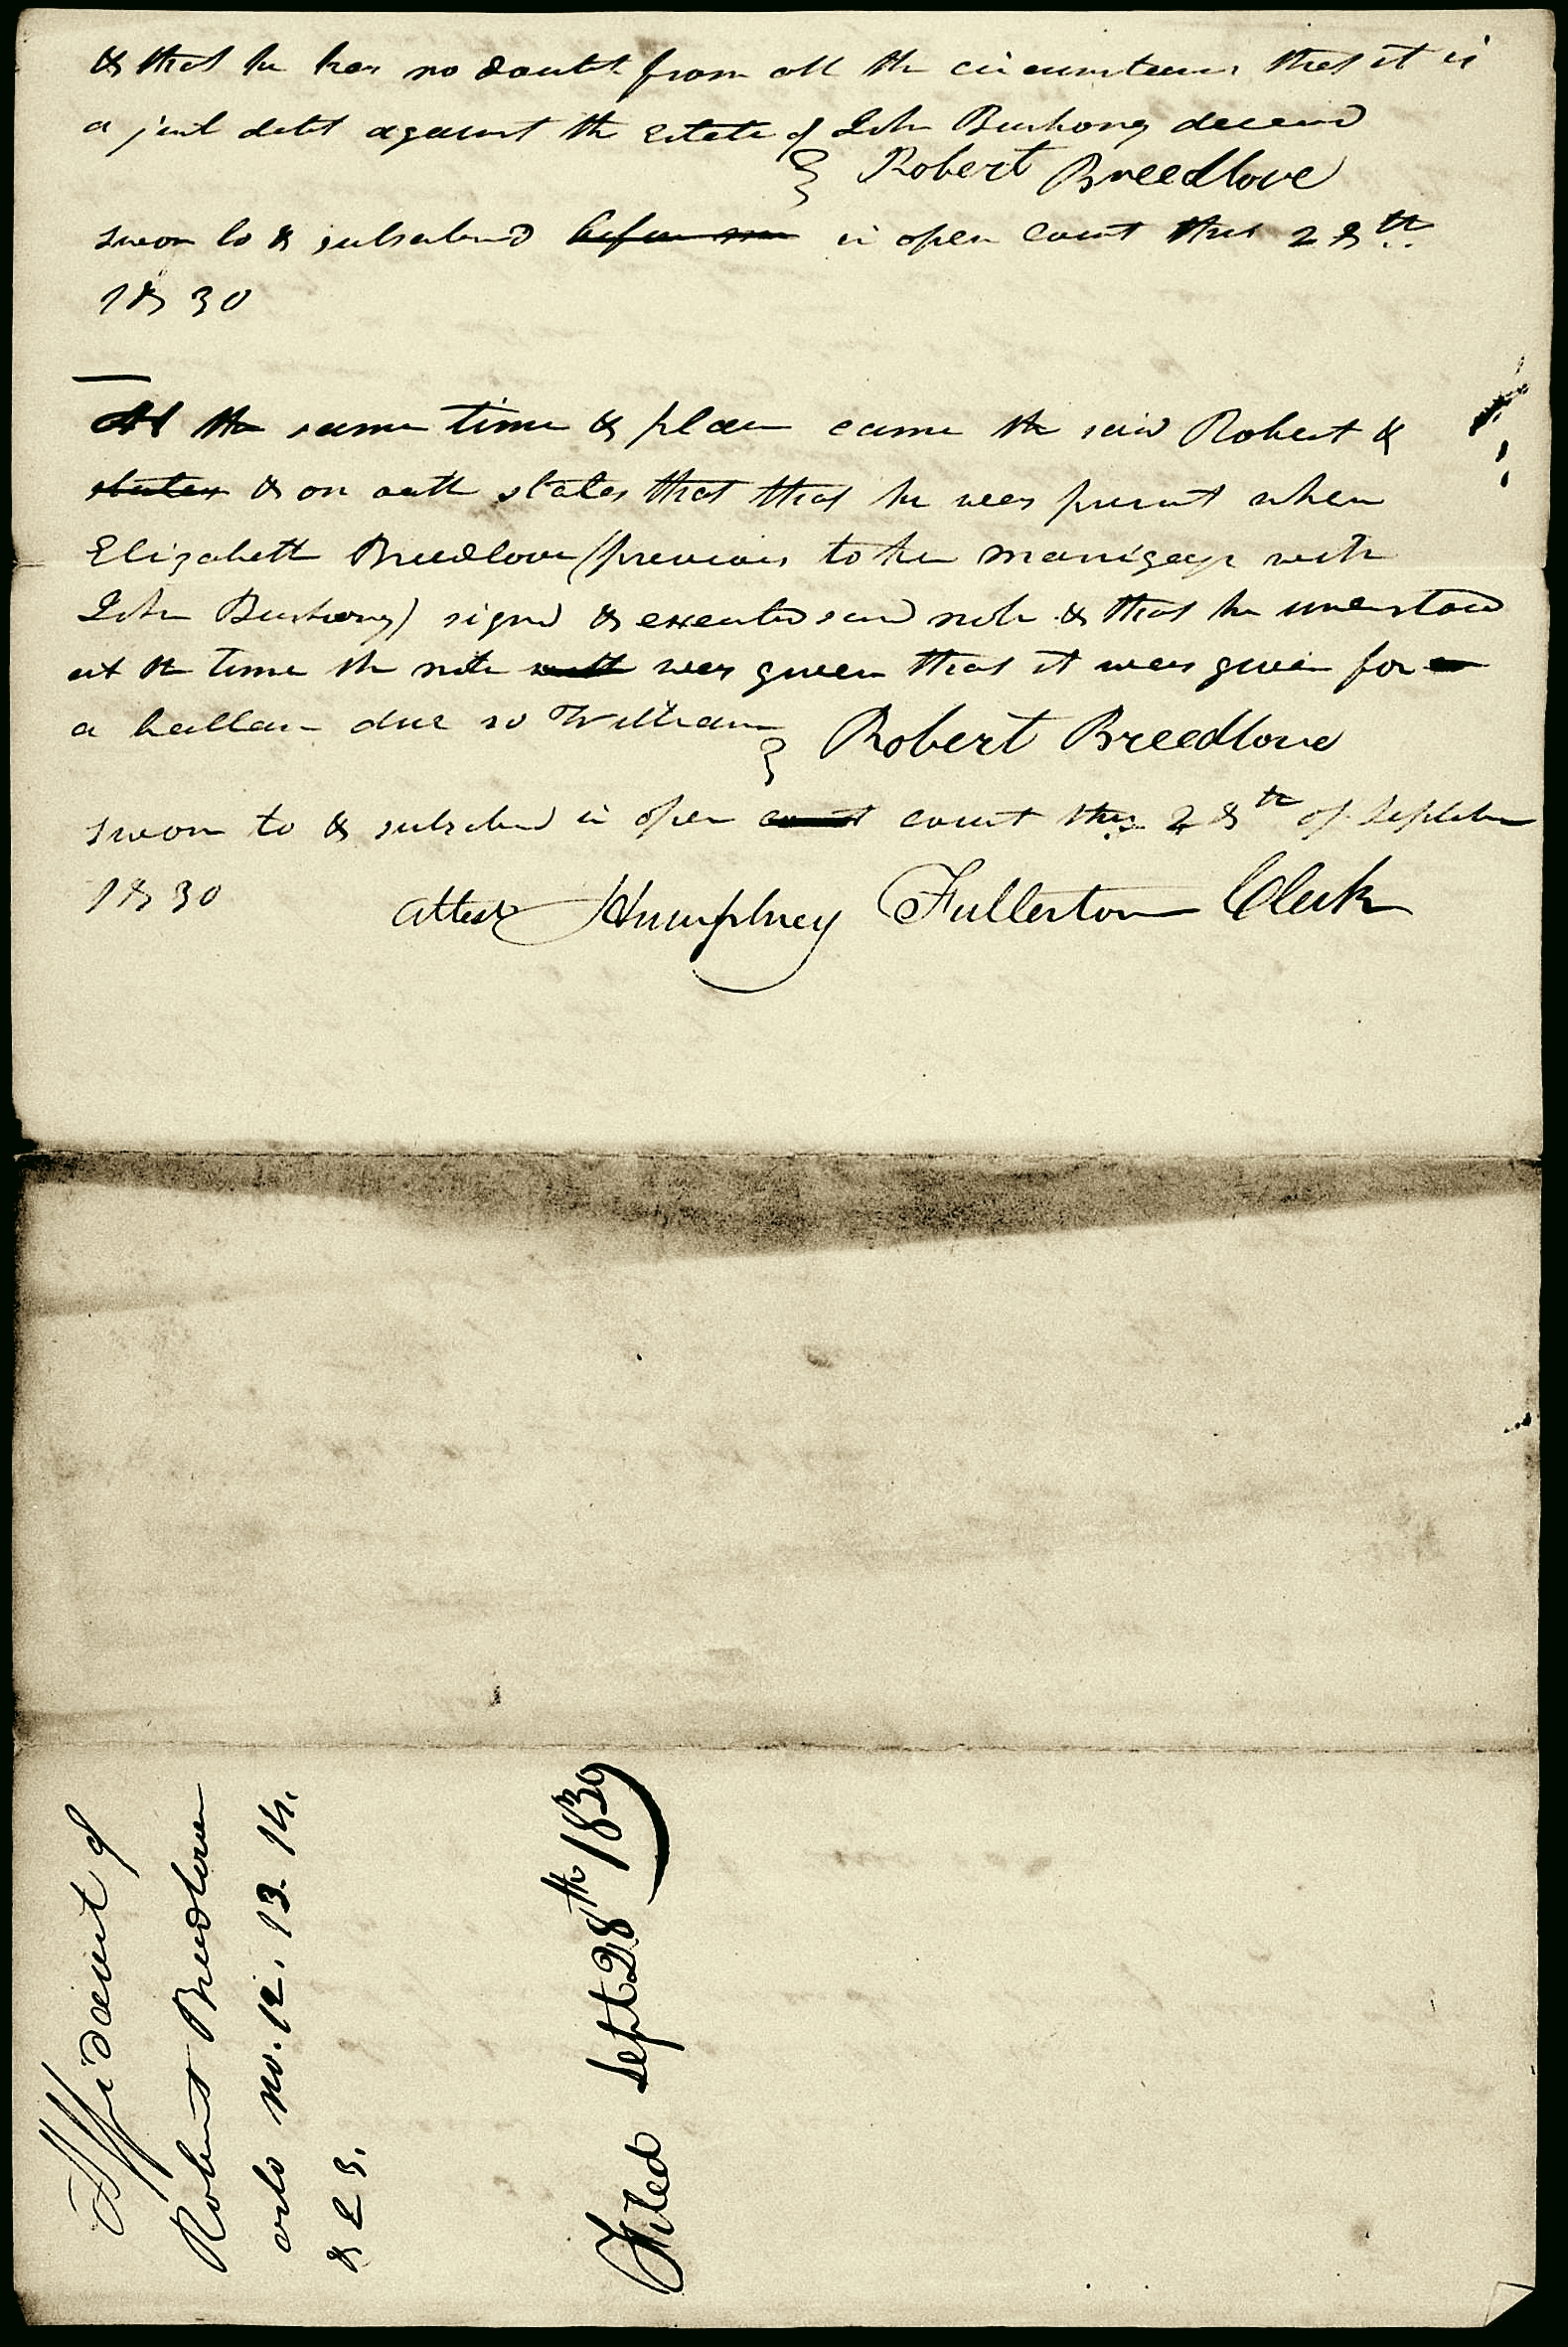 & that he has no doubt from all the circumstances that it is
a just debt against the estate of John Bushong deceasd
Robert Breedlove
sworn to & subscribed before me in open court this 28th
1830
At the same time & place came the said Robert &
states & on oath states that that he was present when
Elizabeth Breedlove (previous to her marriage with
John Bushong) signd & executed said note & that he understood
at the time the note was given that it was given for
a ballance due so William
Robert Breedlove
sworn to & subscribed in open court court this 28th of September
1830 attest Humphrey Fullerton Clerk
Affidavit of
Robert Breedlove
no. 12. 13. 14.
& 23.
Filed Sept 28th 1830